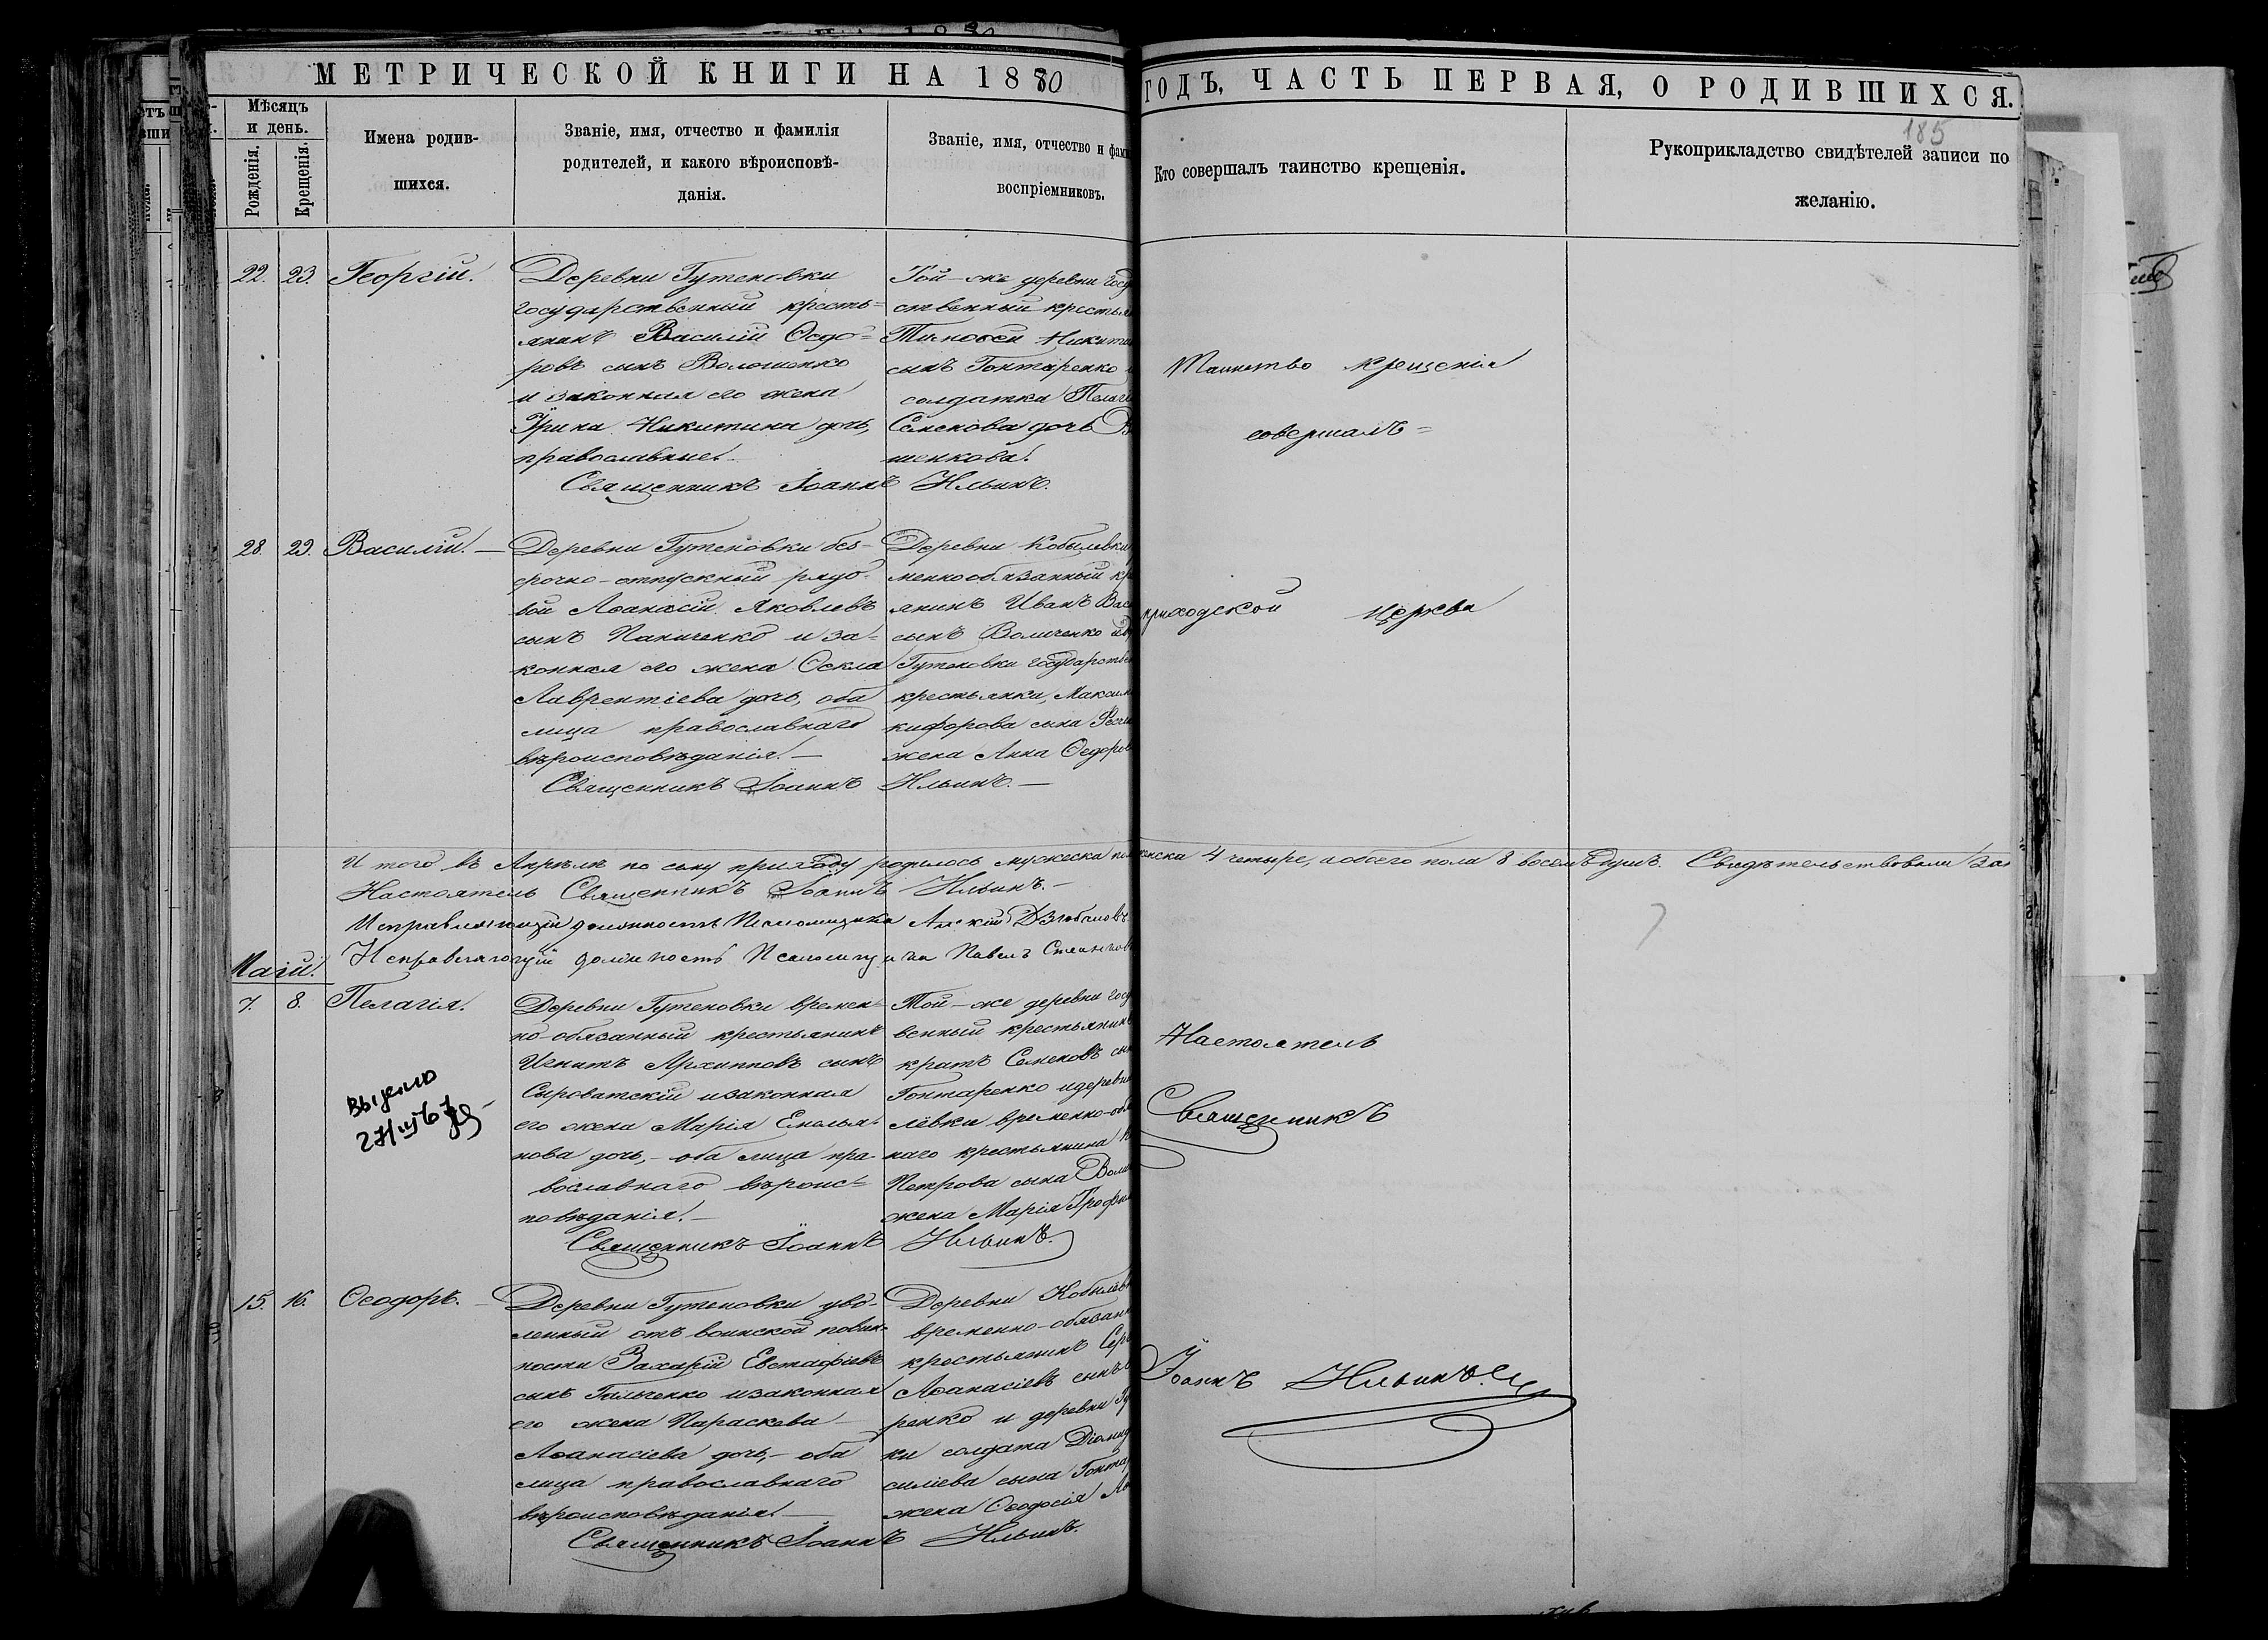 МЕТРИЧЕСКОЙ КНИГИ НА 1880
ГОДЪ, ЧАСТЬ ПЕРВАЯ, О РОДИВШИХСЯ.
185
Мѣсяцъ
и день.
Рожденія.
Крещенія.
Имена родив-
шихся.
Званіе, имя, отчество и фамилія
родителей, и какого вѣроисповѣ-
данія.
Званіе, имя, отчество и фами
воспріемниковъ.
Кто совершалъ таинство крещенія.
Рукоприкладство свидѣтелей записи по
желанію.
22. 23. Георгій.
Деревни Гутеновки
государственный кресть=
янинъ Василій Ѳедо=
ровъ сынъ Волошенко
и законная его жена
Ірина Никитина дочь,
православные.
Той-же деревни госуд
ственный крестья
Тимоѳей Никитин
сынъ Гонтаренко и
солдатка Пелагі
Семенова дочь В
шенкова.
Священникъ Іоаннъ Ильинъ.
28. 29. Василій.
Деревни Гутеновки без-
срочно-отпускный рядо-
вой Аѳанасій Яковлевъ
сынъ Паниченко и за-
конная его жена Ѳекла
Лаврентіева дочь, оба
лица православнаго
вѣроисповѣданія.
Деревни Кобылевки
меннообязанный кр
янинъ Иванъ Вас
сынъ Воличенко и де
Гутеновки государствен
крестьянки, Максим
кифорова сына
жена Анна Ѳедоров
Священникъ Іоаннъ Ильинъ.
Таинство крещенія
совершалъ =
приходской церкви
И того въ Апрѣлѣ по сему приходу родилось мужеска пол женска 4 четыре, а обоего пола 8 восемъ душъ. Свидѣтельствовали
Настоятель Священникъ Іоаннъ Ильинъ.
Исправляющій должность Псаломщика
Исправляющій должность Псаломщика Павелъ
Маій.
7. 8. Пелагія.
Деревни Гутеновки времен-
но-обязанный крестьянинъ
Игнатъ Архипповъ сынъ
Сыроватскій и законная
его жена Марія Емелья-
нова дочь,- оба лица пра-
вославнаго вѣроис-
повѣданія.
Той-же деревни госу
венный крестьянинъ
кратъ Семеновъ сы
Гонтаренко и деревни
левки временно-обя
наго крестьянина
Петрова сына
жена Марія Трофим
Священникъ Іоаннъ Ильинъ.
Настоятель
Священникъ
15. 16. Ѳеодоръ.
Деревни Гутеновки уво-
ленный отъ воинской повин-
ности Захарій Евстафіевъ
сынъ Гальченко и законная
его жена Параскева
Аѳанасіева дочь,- оба
лица православнаго
вѣроисповѣданія.
Деревни Кобылев
временно-обязан
крестьянинъ Сер
Аѳанасіевъ сынъ
ренко и деревни Гу
ки солдата Діомид
силіева сына Гонта
жена Ѳеодосія
Священникъ Іоаннъ Ильинъ.
Іоаннъ Ильинъ.